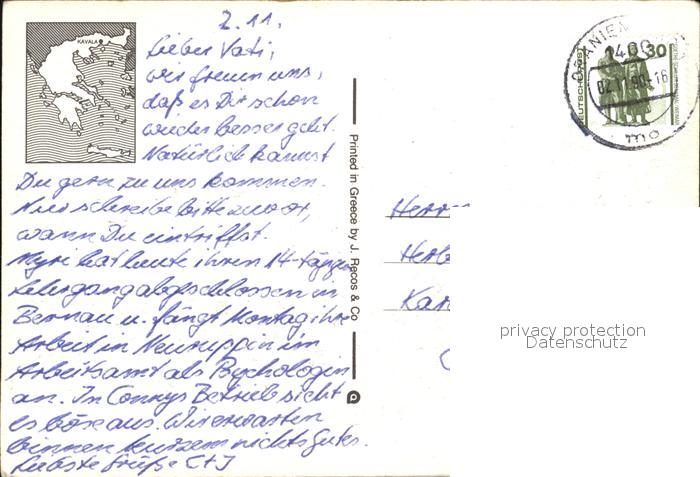 2.11.
KAVALA
Lieber Vati,
wir freuen uns,
daß es Dir schon
wieder besser geht.
Natürlich kannst
Du gern zu uns kommen.
Nur schreibe bitte zuvor,
wann Du eintriffst.
hat heute ihren 14-tägigen
Lehrgang abgeschlossen in
Bernau u. fängt Montag ihre
Arbeit in Neuruppin im
Arbeitsamt als Psychologin
an. In Connys Betrieb sieht
es böse aus. Wir erwarten
binnen kurzem nichts Gutes.
Liebste Grüße C+J
Printed in Greece by J. Recos & Co
DEUTSCHE POST
30
ORANIEN
1400
02.11.90-16
mo
Herr
Herb
Kar
privacy protection
Datenschutz